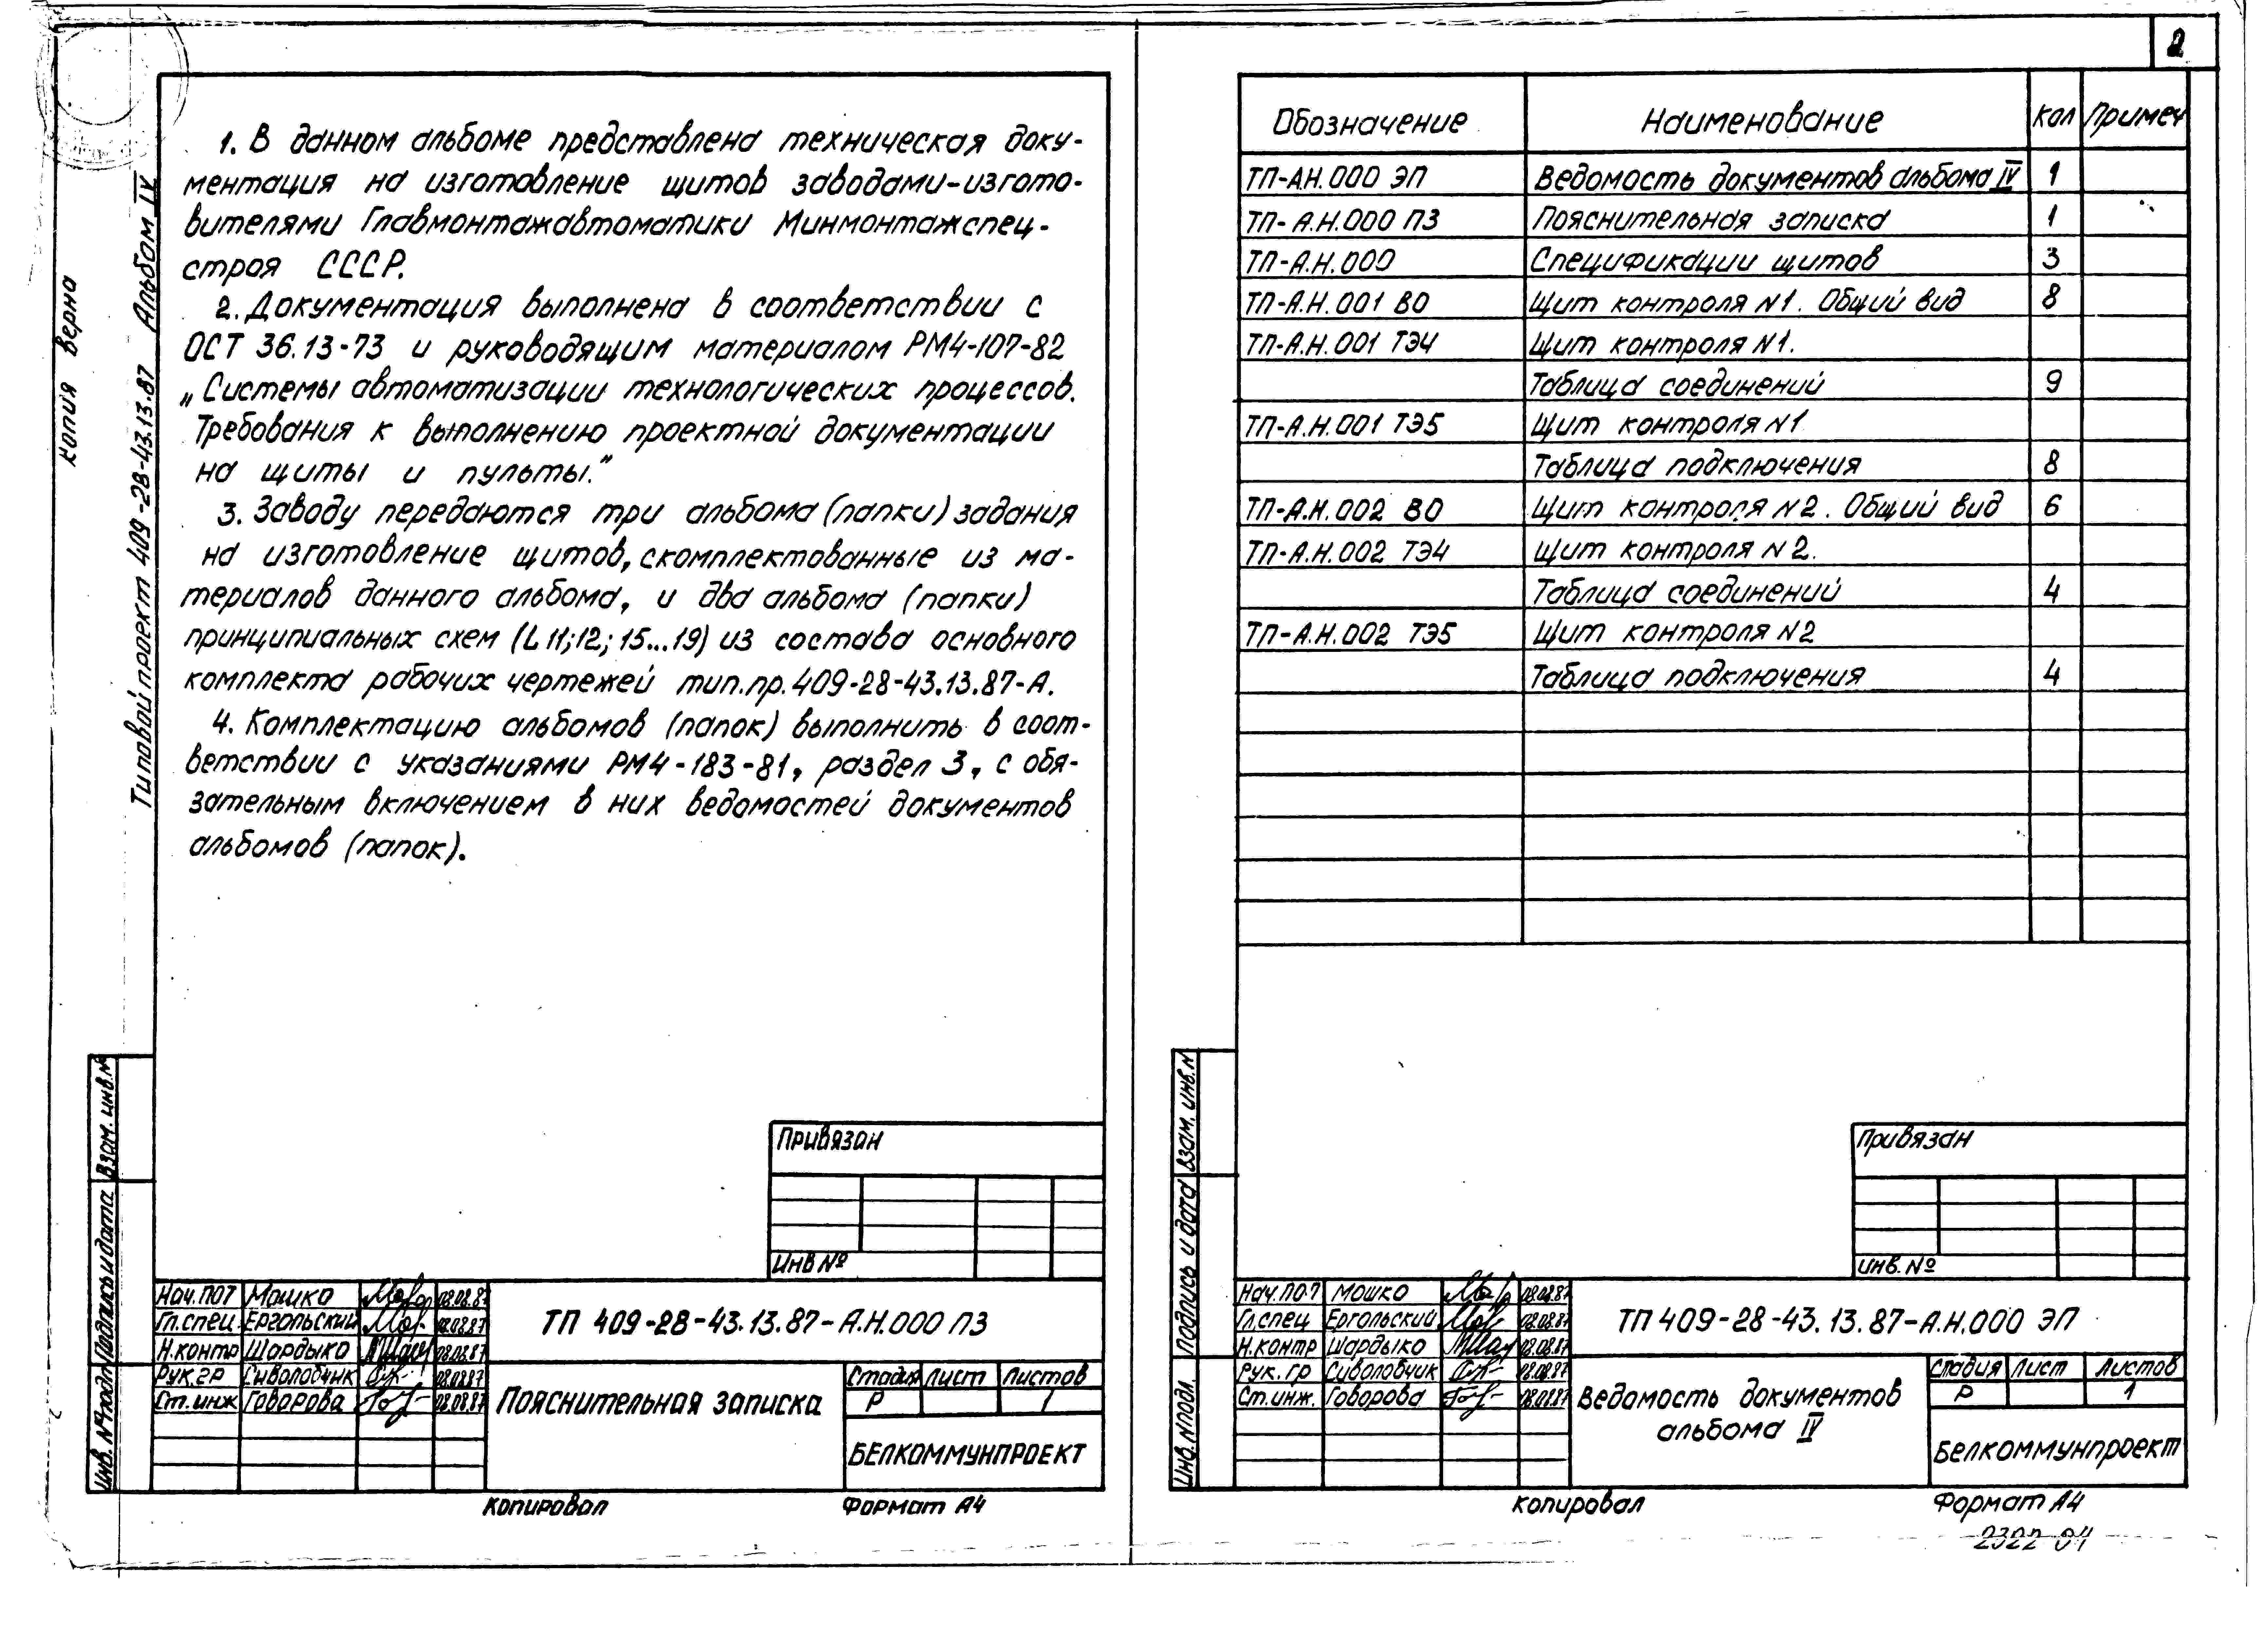 2
копия верно
Типовой проект 409-28-43.13.87 Альбом IV
1. В данном альбоме представлена техническая доку-
ментация на изготовление щитов заводами-изгото-
вителями Главмонтажавтоматики Минмонтажспец-
строя СССР.
2. Документация выполнена в соответствии с
ОСТ 36.13-73 и руководящим материалом РМ4-107-82
„Системы автоматизации технологических процессов.
Требования к выполнению проектной документации
на щиты и пульты.”
3. Заводу передаются три альбома (папки) задания
на изготовление щитов, скомплектованные из ма-
териалов данного альбома, и два альбома (папки)
принципиальных схем (L 11;12; 15...19) из состава основного
комплекта рабочих чертежей тип.пр. 409-28-43.13.87-А.
4. Комплектацию альбомов (папок) выполнить в соот-
ветствии с указаниями РМ4-183-81, раздел 3, с обя-
зательным включением в них ведомостей документов
альбомов (папок).
Взам. инв.№
Подпись и дата
Инв. № подл
Привязан
Инв №
Нач.ПОТ Мошко 08.08.87
Гл.спец. Ергольский 08.08.87
Н.контр Шардыко 08.08.87
Рук.гр Сиволобчик 08.08.87
Ст.инж Говорова 08.08.87
ТП 409-28-43.13.87-А.Н.000 ПЗ
Пояснительная записка
Стадия Лист Листов
Р 1
БЕЛКОММУНПРОЕКТ
Копировал Формат А4
Обозначение Наименование Кол Примеч
ТП-А.Н.000 ЭП Ведомость документов альбома IV 1
ТП-А.Н.000 ПЗ Пояснительная записка 1
ТП-А.Н.000 Спецификации щитов 3
ТП-А.Н.001 ВО Щит контроля N1. Общий вид 8
ТП-А.Н.001 ТЭ4 Щит контроля N1.
Таблица соединений 9
ТП-А.Н.001 ТЭ5 Щит контроля N1
Таблица подключения 8
ТП-А.Н.002 ВО Щит контроля N2. Общий вид 6
ТП-А.Н.002 ТЭ4 Щит контроля N2.
Таблица соединений 4
ТП-А.Н.002 ТЭ5 Щит контроля N2
Таблица подключения 4
Взам. инв.N
Подпись и дата
Инв. N подл.
Привязан
Инв. №
Нач.ПОТ Мошко 08.08.87
Гл.спец Ергольский 08.08.87
Н.контр Шардыко 08.08.87
Рук. гр Сиволобчик 08.08.87
Ст.инж. Говорова 08.08.87
ТП 409-28-43.13.87-А.Н.000 ЭП
Ведомость документов
альбома IV
Стадия Лист Листов
Р 1
Белкоммунпроект
Копировал Формат А4
2322-04